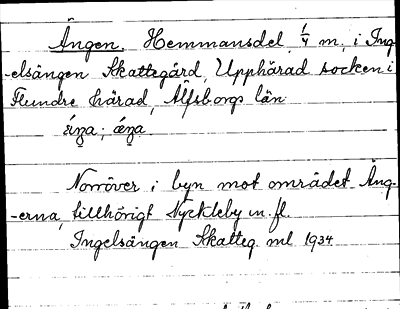 Ängen, Hemmansdel, 1/4 m, i Ing-
-elsängen Skattegård, Upphärad socken i
Flundre härad, Älfsborgs län
Norröver i byn mot området Äng-
-erna, tillhörigt Nyckleby m. fl.
Ingelsängen Skatteg. ml 1934